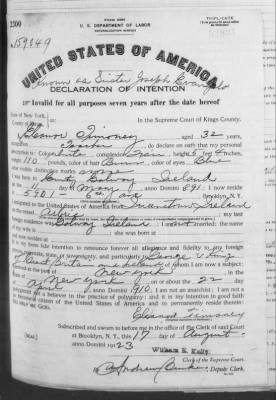 STATE COPY
TRIPLICATE
U. S. DEPARTMENT OF LABOR
NATURALIZATION SERVICE
2200
No. 159349
UNITED STATES OF AMERICA
known as Sister Joseph
DECLARATION OF INTENTION
Invalid for all purposes seven years after the date hereof
State of New York,
In the Supreme Court of Kings County.
County of Kings,
Eleanor Timoney, aged 32 years,
occupation Teacher, do declare on oath that my personal
description is: Color White, complexion Fair, height 5 feet inches,
weight 110 pounds, color of hair Brown, color of eyes Blue
other visible distinctive marks none
Ireland
on the 11 day of May, anno Domini 891; I now reside
at 5901 6th Ave, Brooklyn, N. Y.
I emigrated to the United States of America from Queenstown Ireland
on the vessel Celtic; my last
foreign residence was Galway Ireland; I am not married; the name
of my is ; she was born at
and now resides at
It is my bona fide intention to renounce forever all allegiance and fidelity to any foreign
prince, potentate, state, or sovereignty, and particularly to George V King
of Great Britain and Ireland, of whom I am now a subject;
I arrived at the port of New York, in the
State of New York, on or about the 22 day
of April, anno Domini 1910; I am not an anarchist; I am not a
polygamist nor a believer in the practice of polygamy; and it is my intention in good faith
to become a citizen of the United States of America and to permanently reside therein:
SO HELP ME GOD.
Eleanor Timoney
Subscribed and sworn to before me in the office of the Clerk of said Court
at Brooklyn, N. Y., this 17 day of August
anno Domini 1923
William E. Kelly
Clerk of the Supreme Court.
By Andrew, Deputy Clerk.